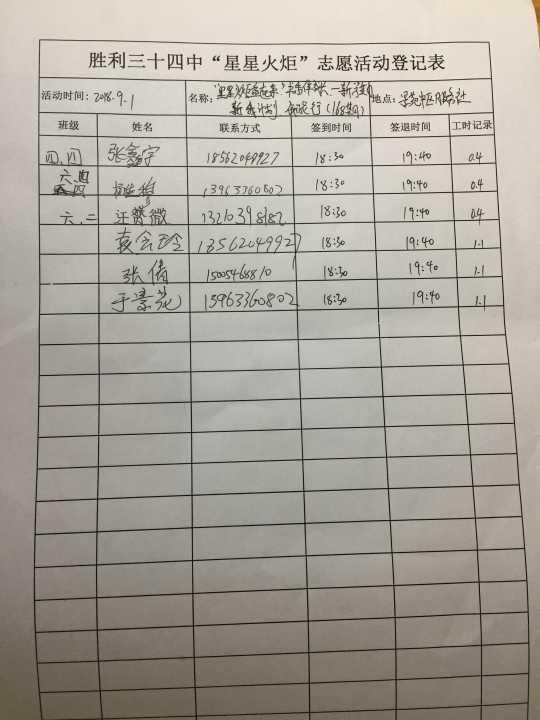 胜利三十四中“星星火炬”志愿活动登记表
活动时间：2018.9.1 名称： 地点：
班级 姓名 联系方式 签到时间 签退时间 工时记录
四.四 张鑫宇 18562049927 18:30 19:40 0.4
六.四 13963360802 18:30 19:40 0.4
六.二 汪赞微 18:30 19:40 0.4
袁会玲 18562049927 18:30 19:40 1.1
张倩 15005468810 18:30 19:40 1.1
于景花 13963360802 18:30 19:40 1.1